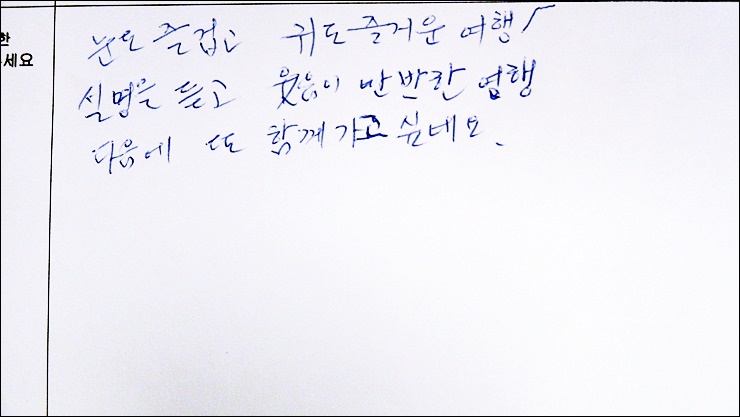 한
세요
눈도 즐겁고 귀도 즐거운 여행!
설명을 듣고 웃음이 만반한 여행
다음에 또 함께 가고 싶네요.